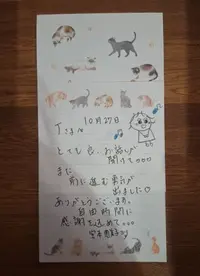 10月27日
Tさま
とても良いお話が
聞けて。。。
また
前に進む勇気が
出ました♡
ありがとうございます。
自由時間に
感謝を込めて。。。